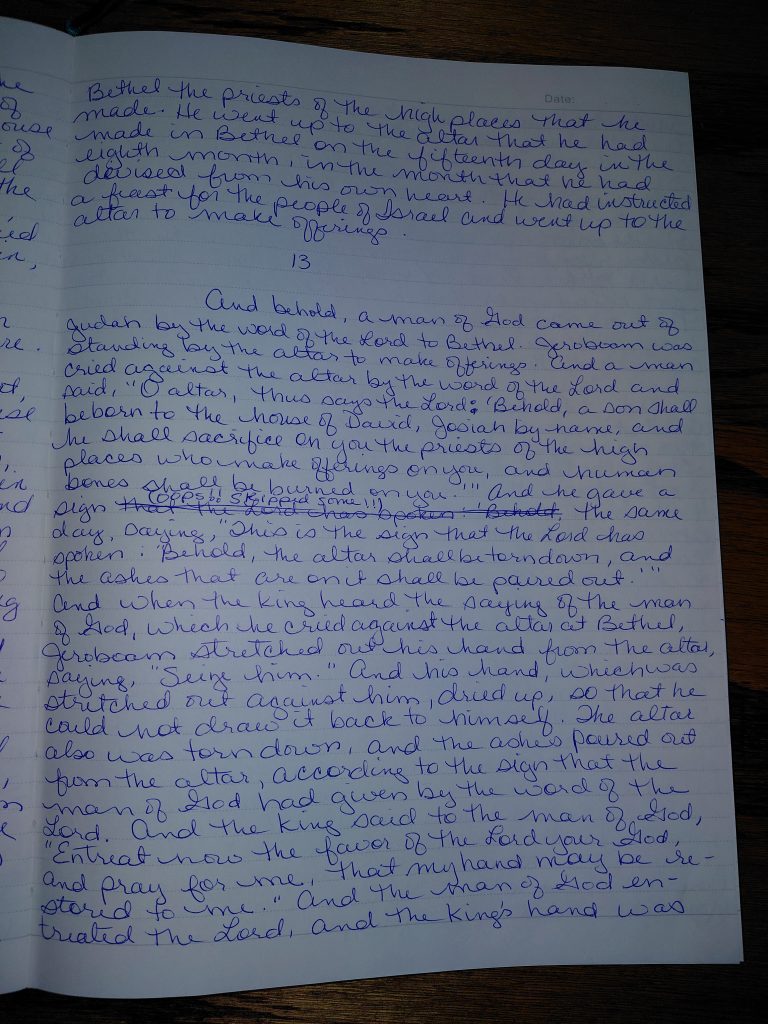 Date:
Bethel the priests of the high places that he
made. He went up to the altar that he had
made in Bethel on the fifteenth day in the
eighth month, in the month that he had
devised from his own heart. He had instructed
a feast for the people of Israel and went up to the
altar to make offerings.
13
And behold, a man of God came out of
Judah by the word of the Lord to Bethel. Jeroboam was
standing by the altar to make offerings. And a man
cried against the altar by the word of the Lord and
said, "O altar, thus says the Lord: 'Behold, a son shall
be born to the house of David, Josiah by name, and
he shall sacrifice on you the priests of the high
places who make offerings on you, and human
bones shall be burned on you.'" And he gave a
(OOPS!! Skipped some!!)
sign that the Lord has spoken: 'Behold, the same
day, saying, "This is the sign that the Lord has
spoken: 'Behold, the altar shall be torn down, and
the ashes that are on it shall be poured out.'"
And when the king heard the saying of the man
of God, which he cried against the altar at Bethel,
Jeroboam stretched out his hand from the altar,
saying, "Seize him." And his hand, which was
stretched out against him, dried up, so that he
could not draw it back to himself. The altar
also was torn down, and the ashes poured out
from the altar, according to the sign that the
man of God had given by the word of the
Lord. And the king said to the man of God,
"Entreat now the favor of the Lord your God,
and pray for me, that my hand may be re-
stored to me." And the man of God en-
treated the Lord, and the king's hand was